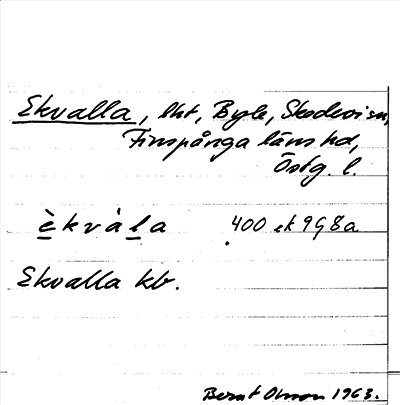 Ekvalla, lht, Byle, Skedevi sn,
Finspånga läns hd,
Östg. l.
è̱kvàḻa 400 ek 9G8a
Ekvalla kb.
Bernt Olsson 1963.